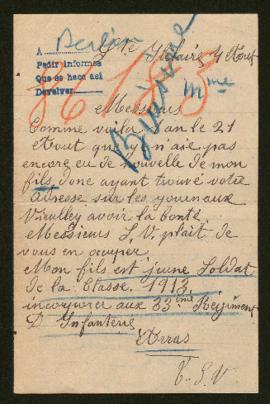 A Berlin
Pedir informes
Que se haga así
Devolver
Ste Hilaire 4 Aout
86183
Buisine
Mme
Messieurs
Comme voila 1 an le 21
Aout que je n'aie pas
encore eu de nouvelle de mon
fils, donc ayant trouvé votre
Adresse sur les journaux
Veuilley avoir la bonté
Messieurs S. V. plait de
vous en occuper
Mon fils est jeune Soldat
de la Classe 1913
incorporer aux 33eme Regiment
D' Infanterie
Arras
T. S. V